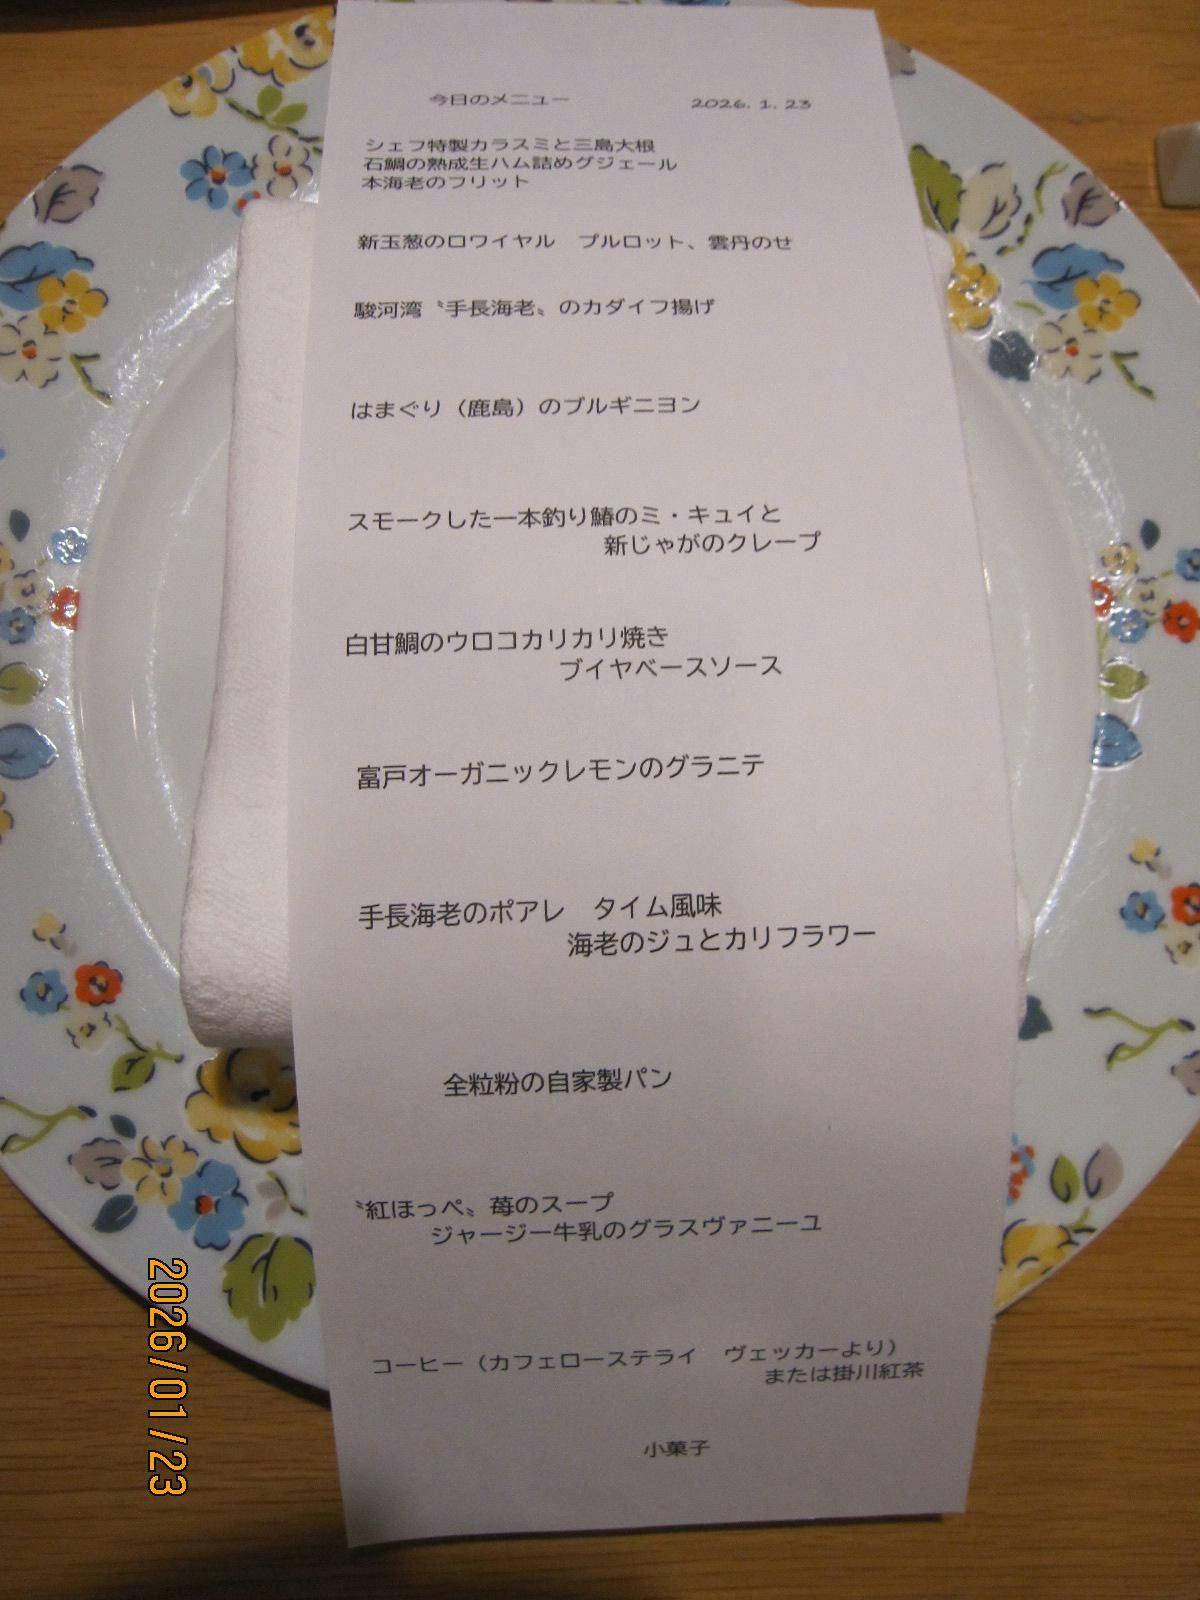 今日のメニュー　2026. 1. 23
シェフ特製カラスミと三島大根
石鯛の熟成生ハム詰めグジェール
本海老のフリット
新玉葱のロワイヤル　プルロット、雲丹のせ
駿河湾〝手長海老〟のカダイフ揚げ
はまぐり（鹿島）のブルギニヨン
スモークした一本釣り鰆のミ・キュイと
新じゃがのクレープ
白甘鯛のウロコカリカリ焼き
ブイヤベースソース
富戸オーガニックレモンのグラニテ
手長海老のポアレ　タイム風味
海老のジュとカリフラワー
全粒粉の自家製パン
〝紅ほっぺ〟苺のスープ
ジャージー牛乳のグラスヴァニーユ
コーヒー（カフェローステライ　ヴェッカーより）
または掛川紅茶
小菓子
2026/01/23